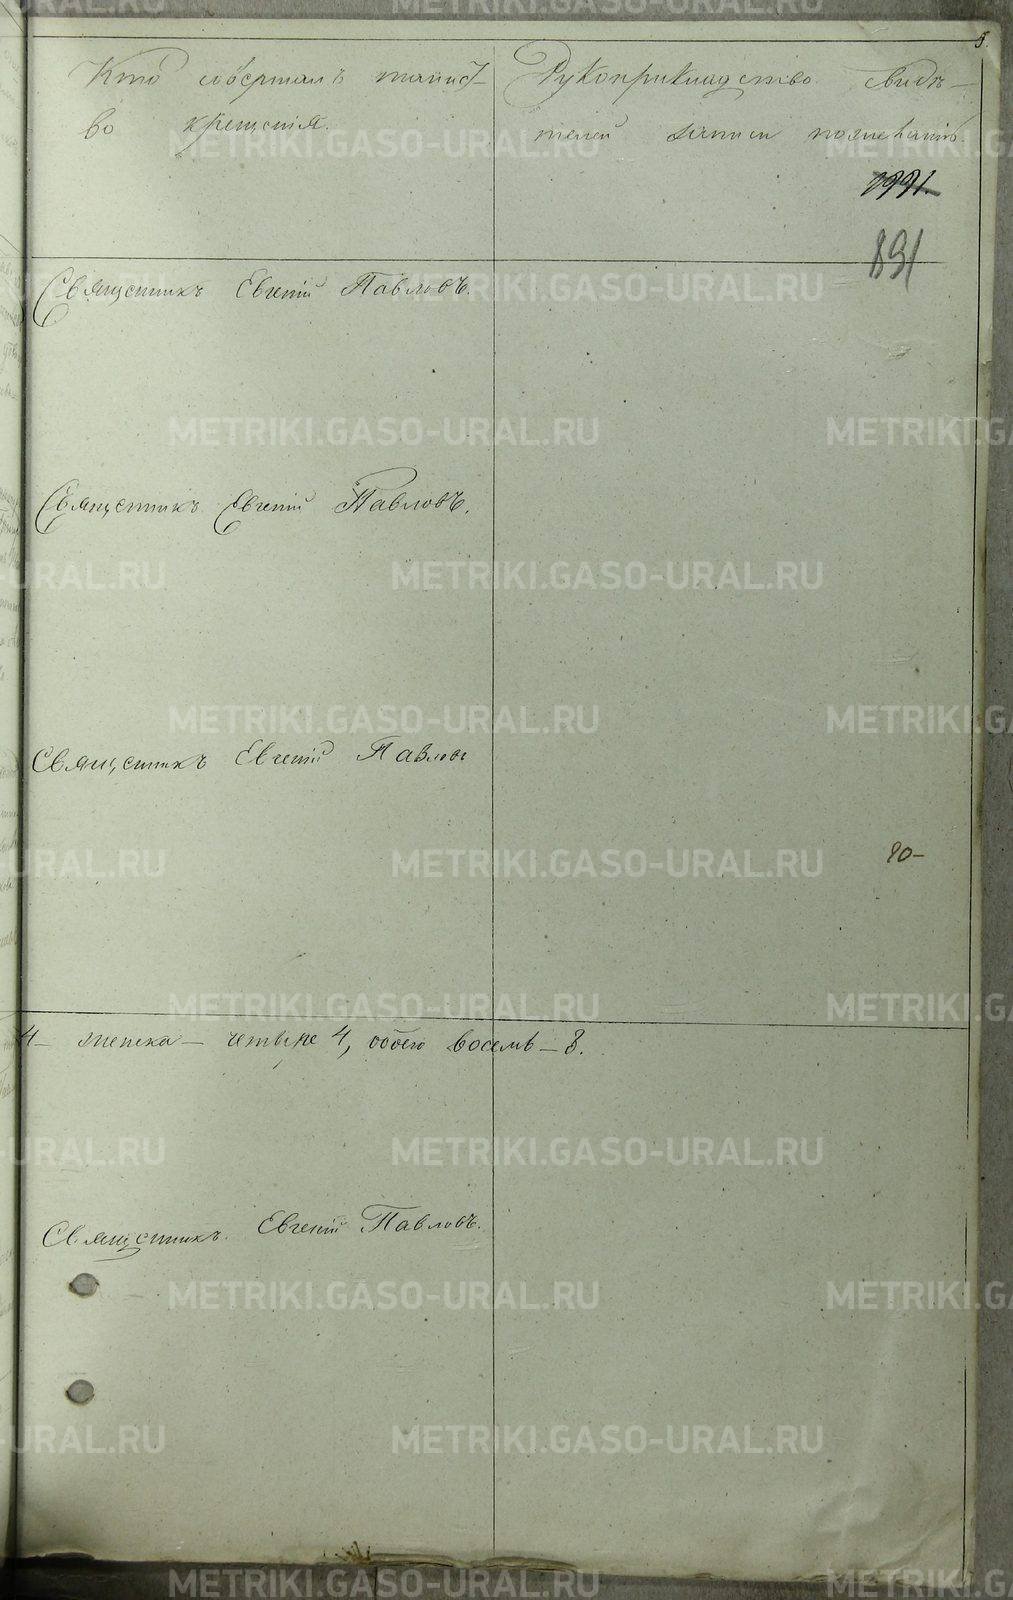 5.
Кто совершалъ таинст-
во крещенія.
Рукоприкладство свидѣ-
телей записи по желанію.
1991.
891
Священникъ Евгеній Павловъ.
Священникъ Евгеній Павловъ.
Священникъ Евгеній Павловъ
80-
4- женска - четыре 4, обоего восемь - 8.
Священникъ. Евгеній Павловъ.
METRIKI.GASO-URAL.RU